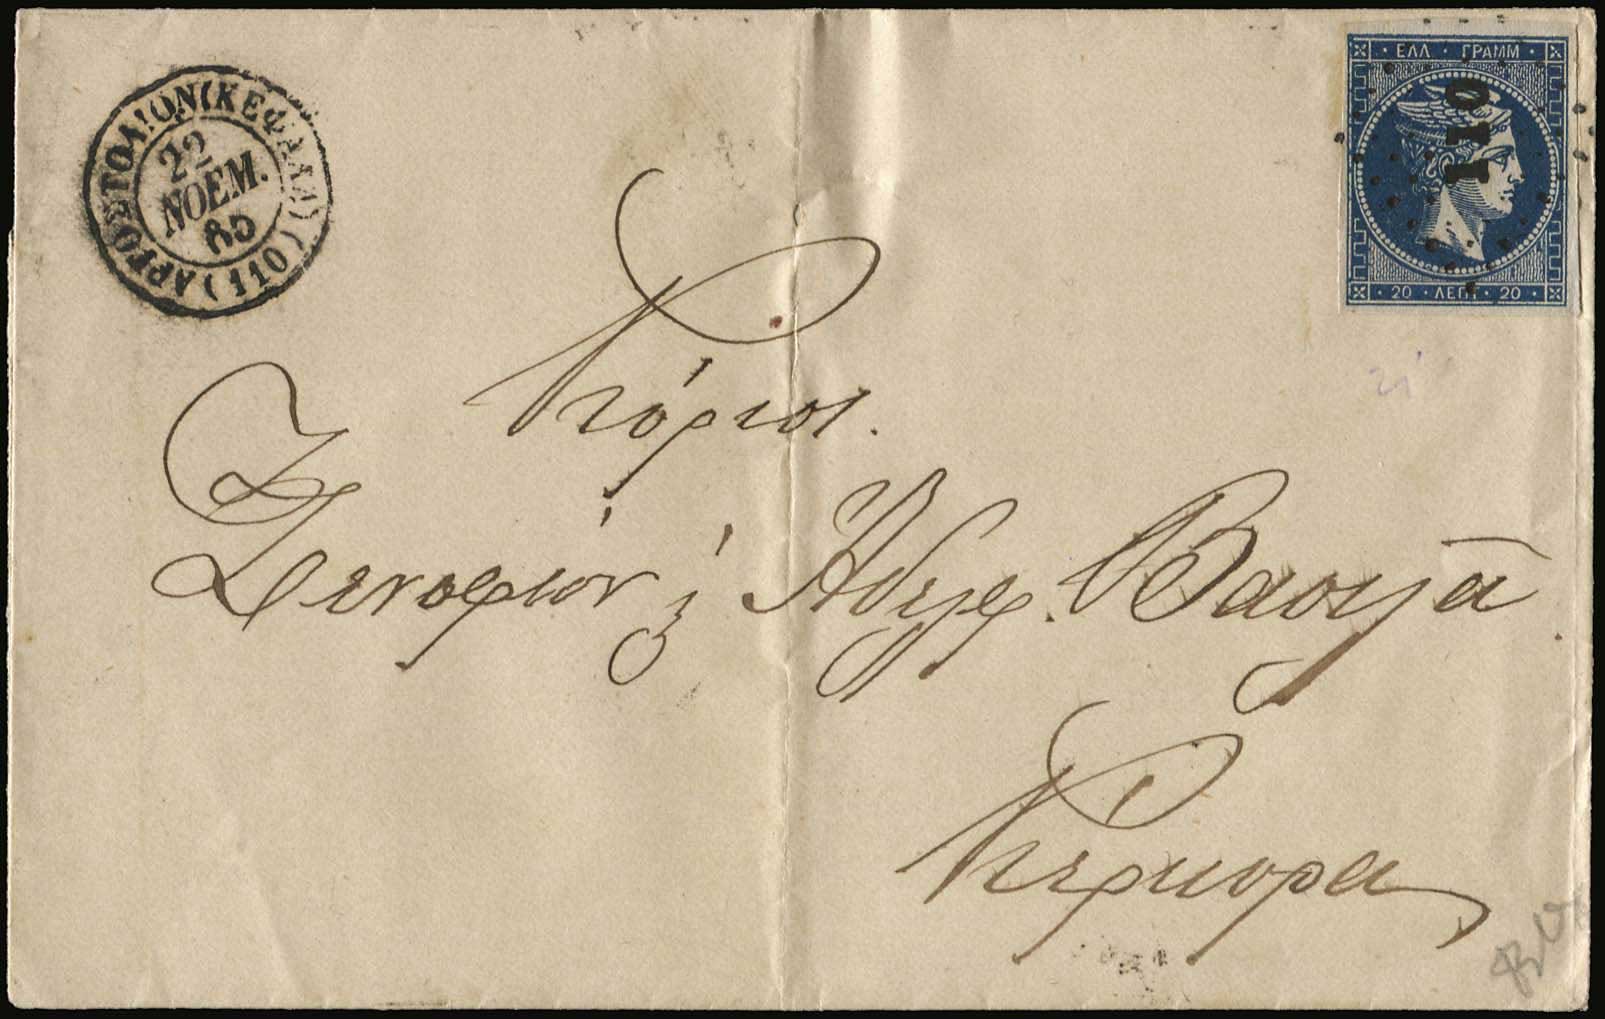 ΑΡΓΟΣΤΟΛΙΟΝ (ΚΕΦΑΛΛ) (110)
22
ΝΟΕΜ.
85
ΕΛΛ · ΓΡΑΜΜ
110
20 · ΛΕΠΤ · 20
Κύριοι.
Ξενοφών & Ἀδελφ. Βασιλᾶ
Κερκυρα